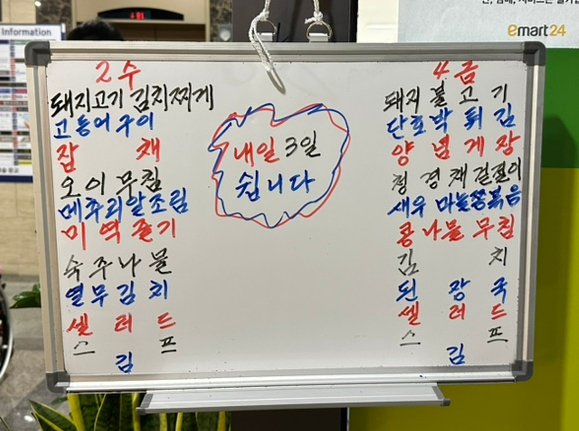 Information
emart24
2수
돼지고기 김치찌게
고등어구이
잡 채
오이무침
메추리알조림
미역줄기
숙주나물
열무김치
셀러드
스 프
김
내일 3일
쉽니다
4금
돼지불고기
단호박튀김
양념게장
청경채겉절이
새우마늘쫑볶음
콩나물무침
김 치
된장국
셀러드
스 프
김